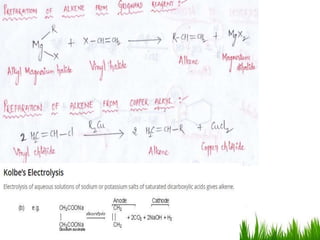 PREPARATION OF ALKENE FROM GRIGNARD REAGENT :-
R
Mg + X-CH=CH2 → R-CH=CH2 + MgX2
X
Alkyl Magnesium halide Vinyl halide Alkene Magnesium dihalide
PREPARATION OF ALKENE FROM COPPER ALKYL :-
2 H2C=CH-Cl R2Cu → 2 H2C=CH-R + CuCl2
Vinyl chloride Alkene Copper chloride
Kolbe's Electrolysis
Electrolysis of aqueous solutions of sodium or potassium salts of saturated dicarboxylic acids gives alkene.
Anode Cathode
(b) e.g. CH2COONa CH2
electrolysis + 2CO2 + 2NaOH + H2
CH2COONa CH2
Sodium succinate